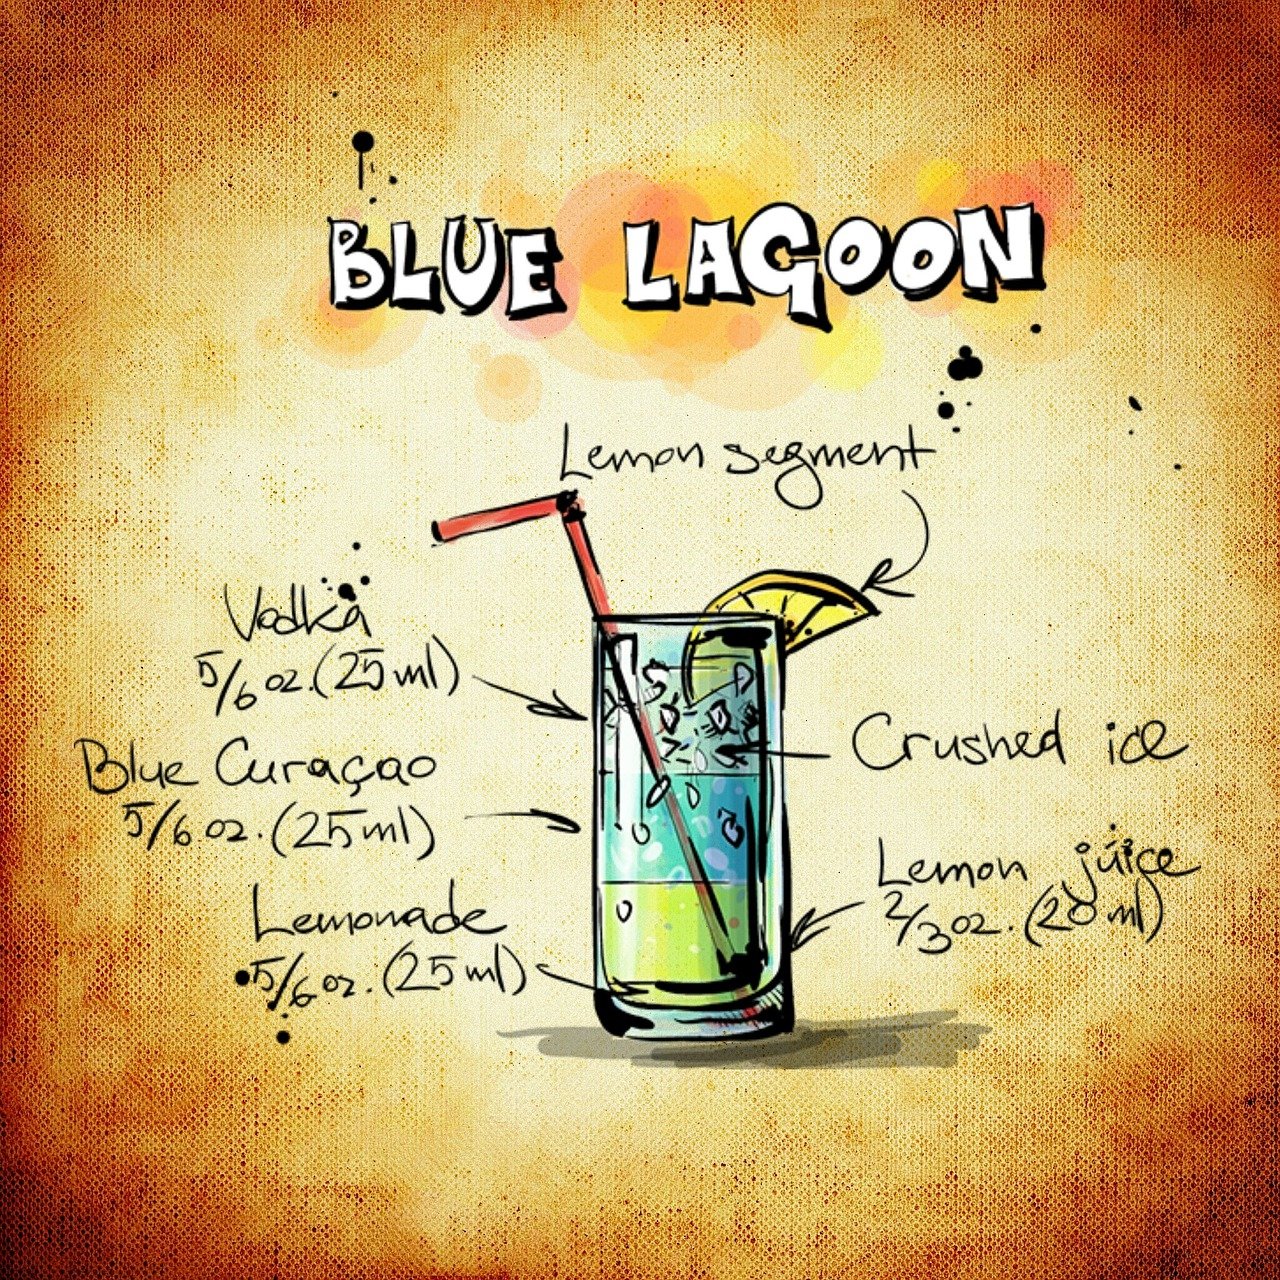 BLUE LAGOON
Lemon segment
Vodka
5/6 oz. (25 ml)
Blue Curaçao
5/6 oz. (25 ml)
Lemonade
5/6 oz. (25 ml)
Crushed ice
Lemon juice
2/3 oz. (20 ml)